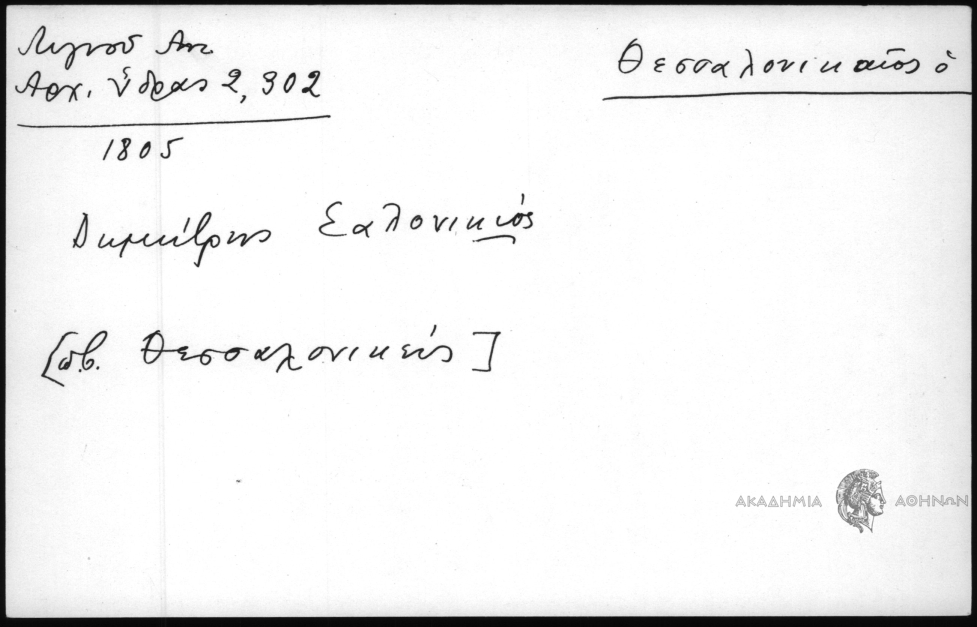 Λιγνού Αντ.
Αρχ. Ύδρας 2, 302
1805
Θεσσαλονικαῖος ὁ
Δημήτρης Σαλονικιός
[πβ. Θεσσαλονικεύς]
ΑΚΑΔΗΜΙΑ ΑΘΗΝΩΝ